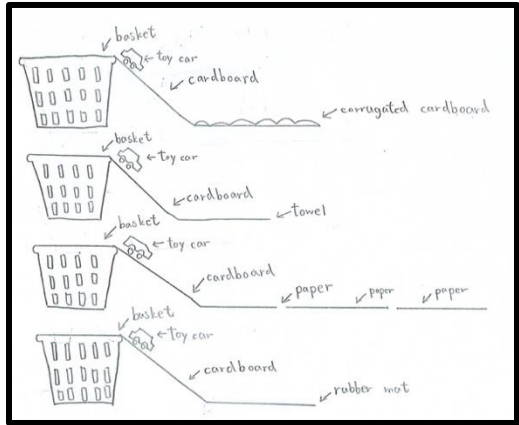 basket
toy car
cardboard
corrugated cardboard
basket
toy car
cardboard
towel
basket
toy car
cardboard
paper
paper
paper
basket
toy car
cardboard
rubber mat